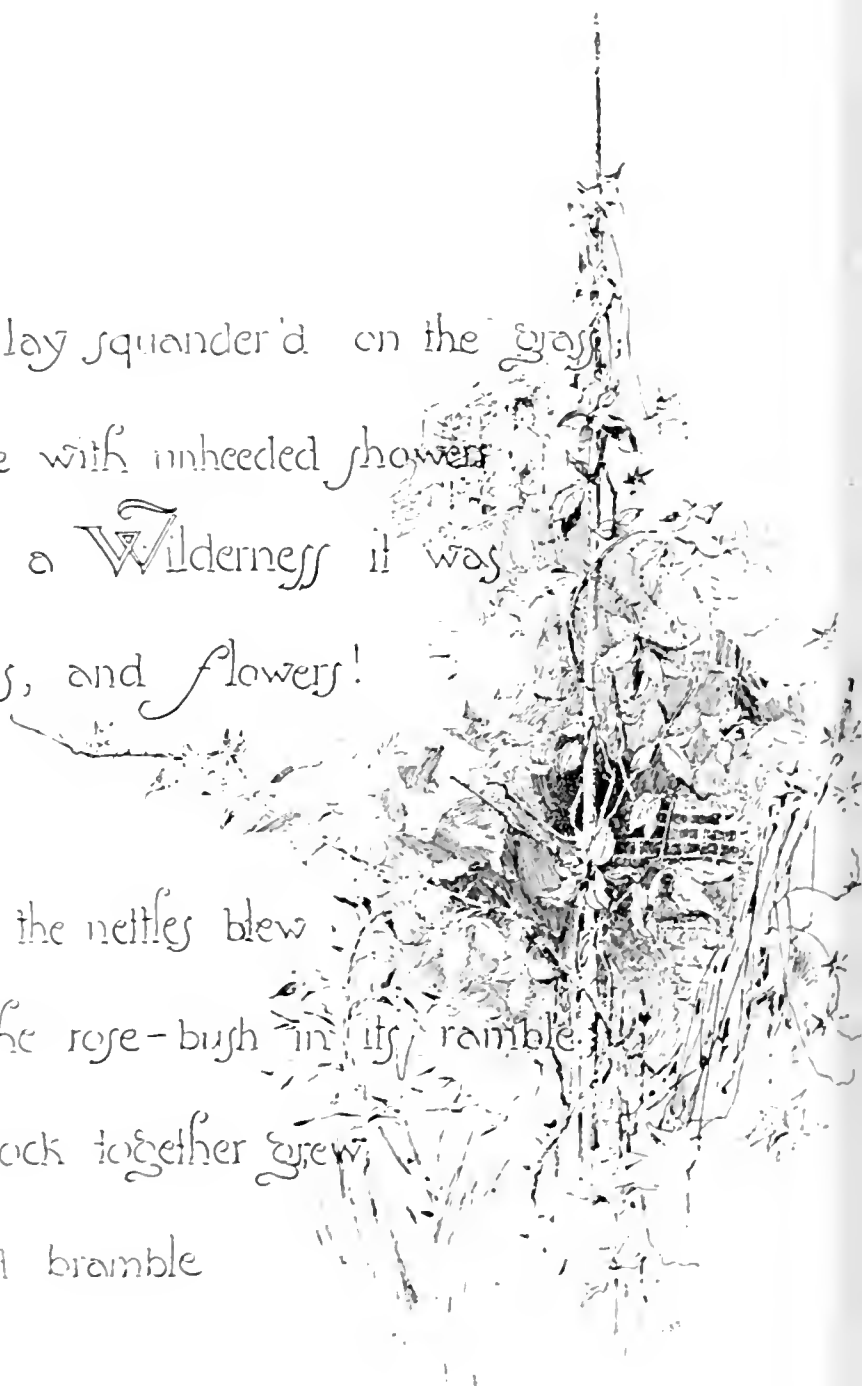 lay squander'd on the grass;
with unheeded showers
a Wilderness it was
and flowers!
the nettles blew
rose-bush in its ramble
together grew,
bramble